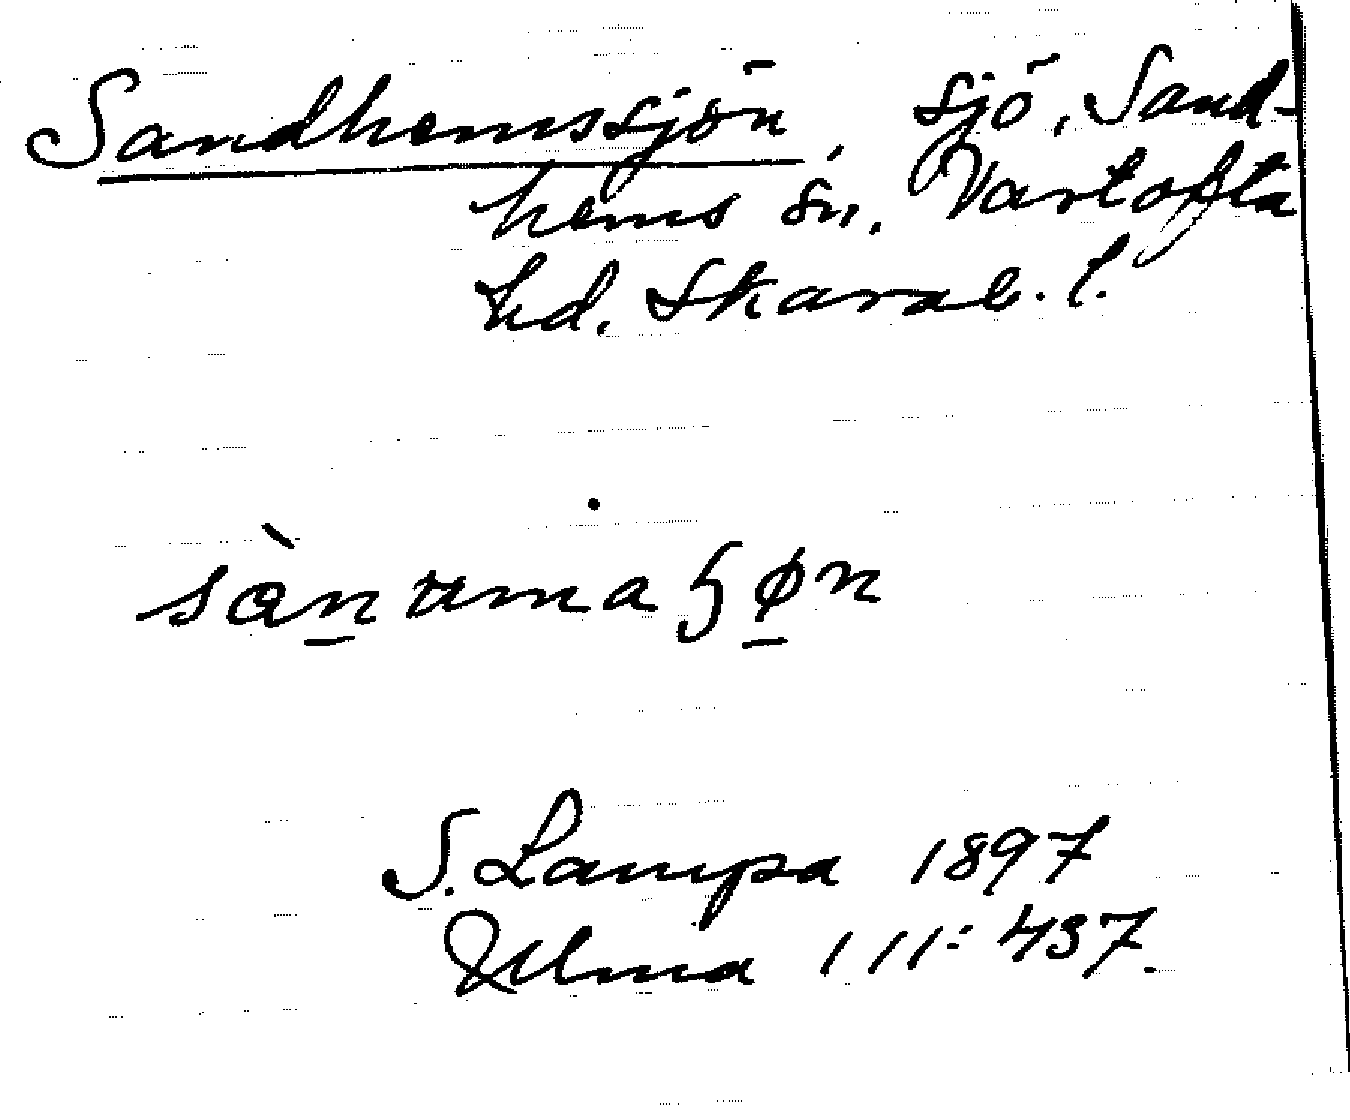 Sandhemssjön, sjö, Sand-
hems sn, Vartofta
hd. Skarab. l.
S. Lampa 1897
Ulma 111:437.